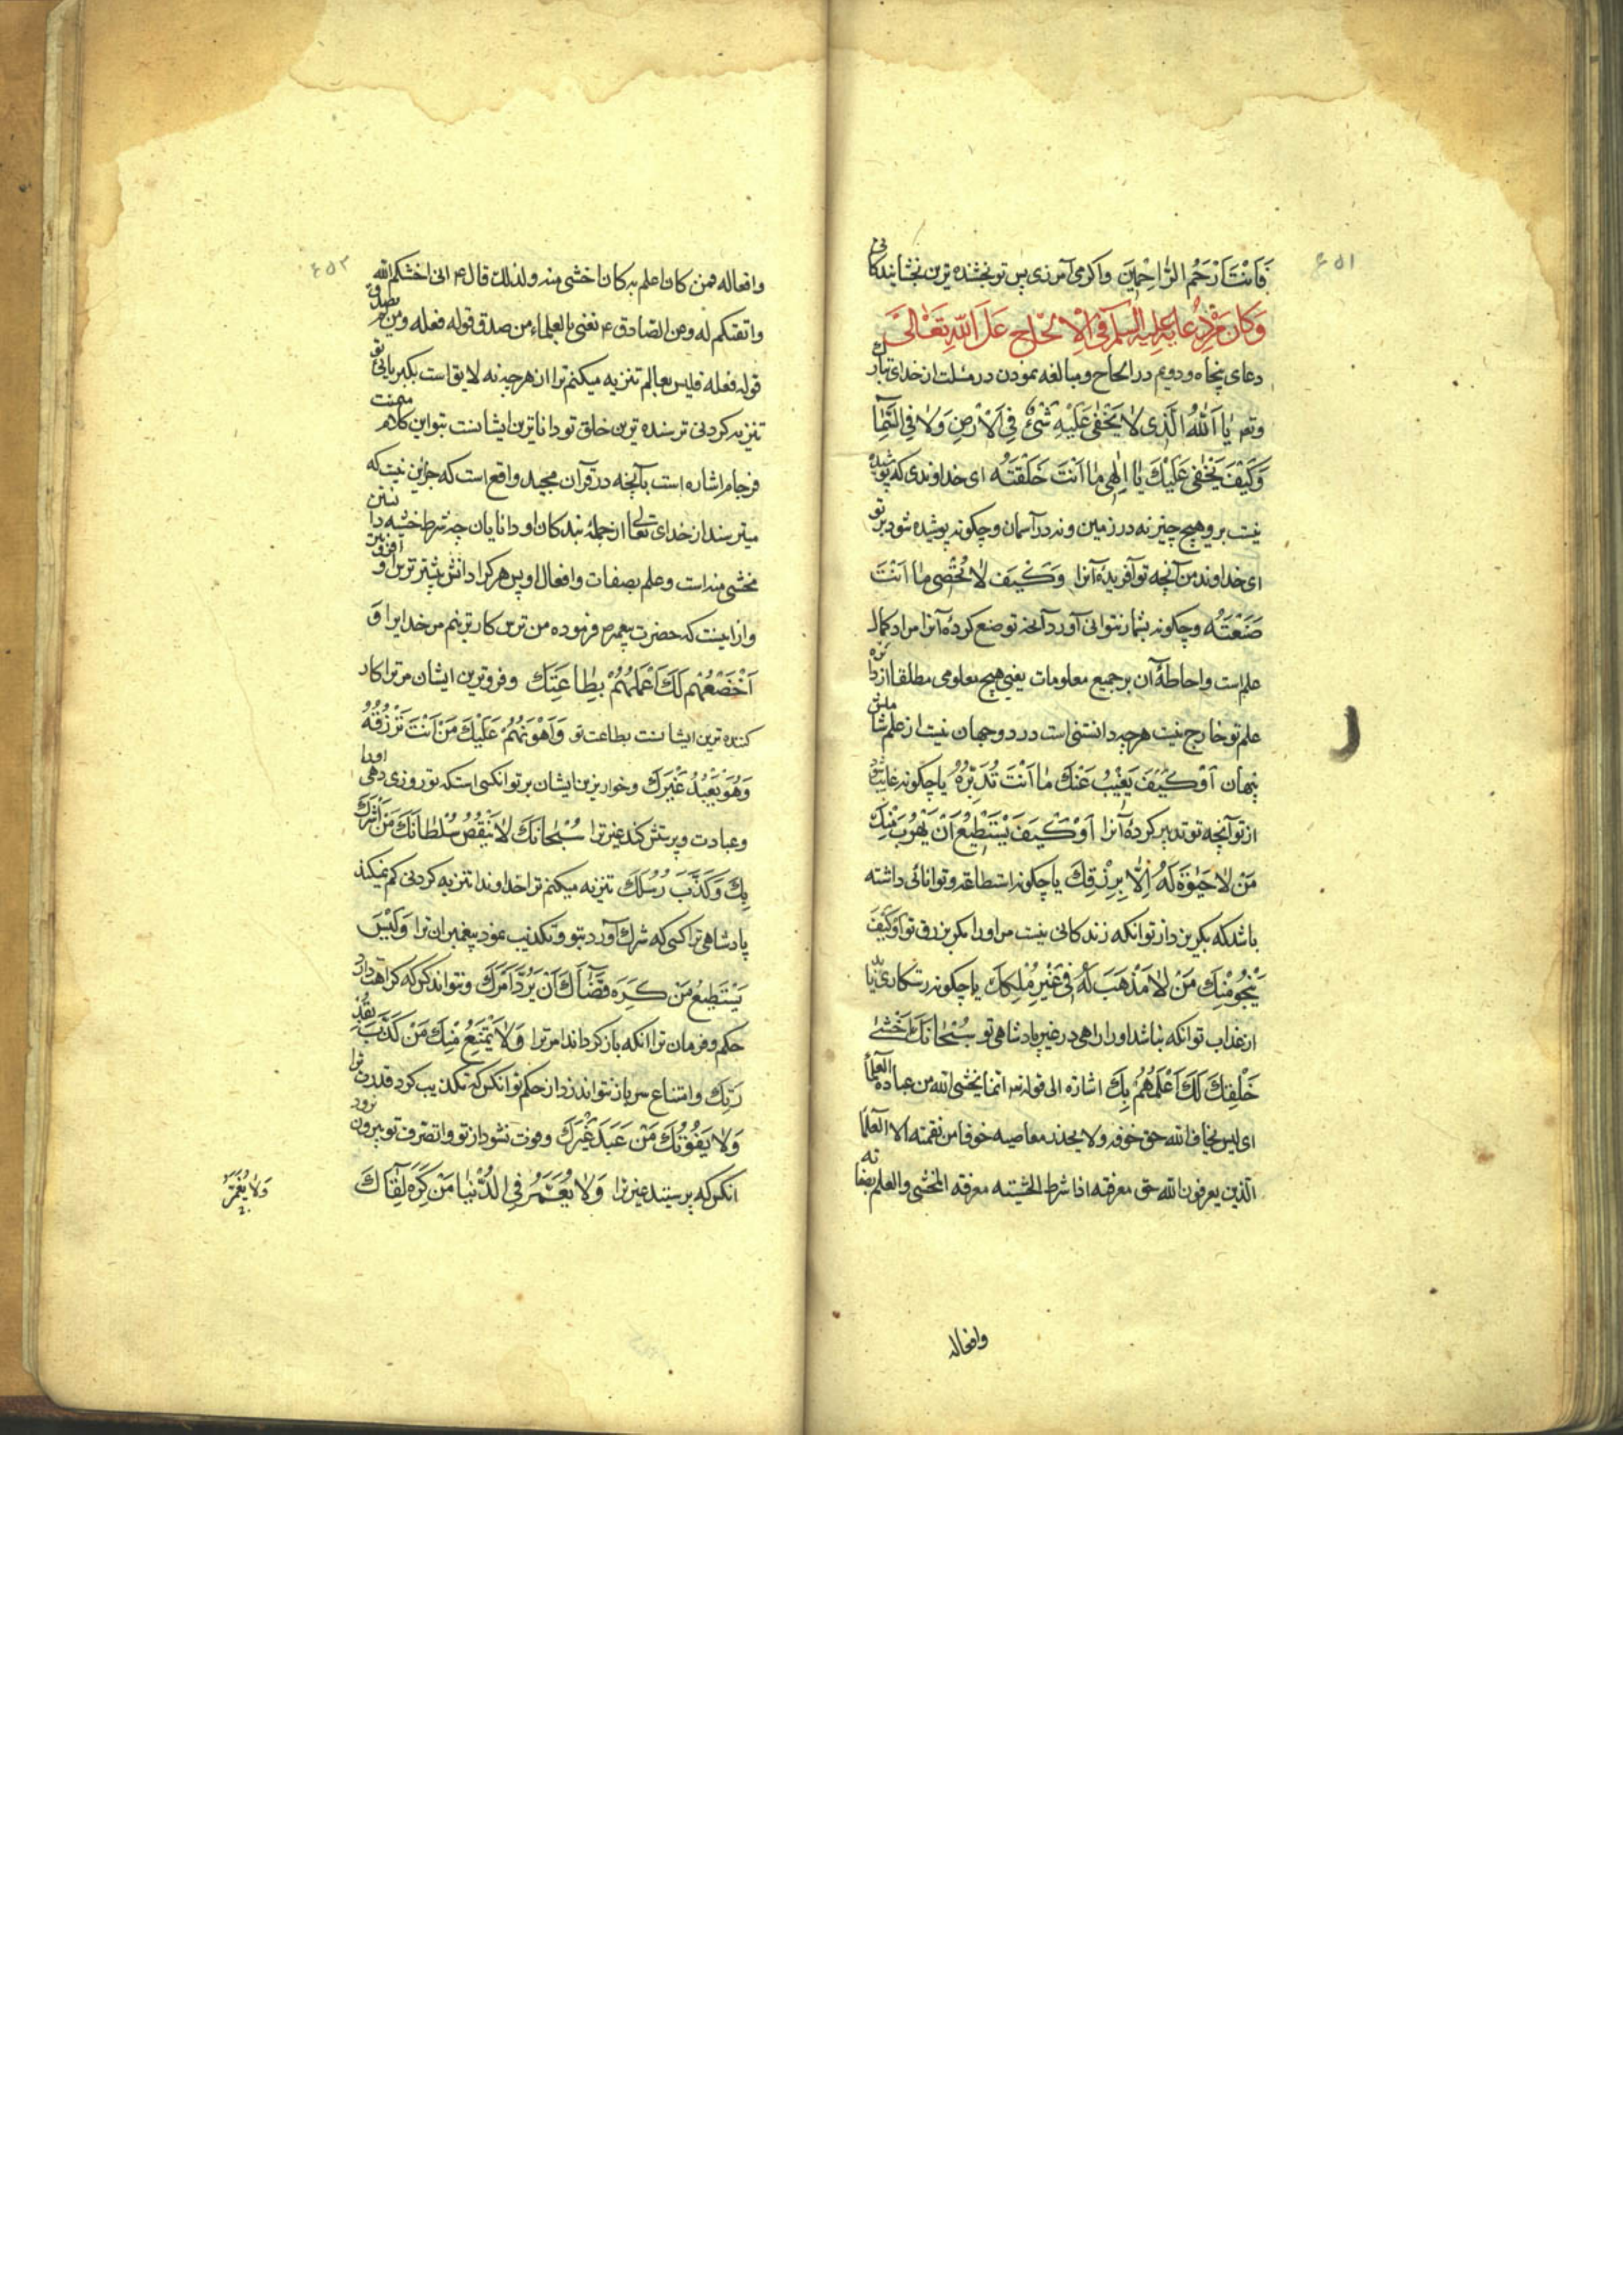 ۶۵۱
فَاَنْتَ اَرْحَمُ الرّٰاحِمٖينَ واکر می آمرزی پس تو بخشنده ترین بخشایندکانی
وَكَانَ مِنْ دُعَائِهِ عَلَيْهِ السَّلَمُ فِي الْاِلْحٰاحِ عَلَى اللّٰهِ تَعٰالىٰ
دعای پنجاه و دویم در الحاح و مبالغه نمودن در مسئلت از خدای تبارک
وتعه يٰا اَللّٰهُ الَّذٖى لاٰ يَخْفىٰ عَلَيْهِ شَئٌ فِي الْاَرْضِ وَلاٰ فِي السَّمٰآءِ
وَكَيْفَ يَخْفىٰ عَلَيْكَ يٰا اِلٰهٖى مٰا اَنْتَ خَلَقْتَهُ ای خداوندی که پوشیده
نیست بر وهیچ چیز نه در زمین و نه در آسمان و چکونه پوشیده شود بر تو
ای خداوند من آنچه تو آفریدهٔ آنرا وَكَيْفَ لاٰ تُحْصٖى مٰا اَنْتَ
صَنَعْتَهُ و چکونه بشمار نتوانی آورد آنچه تو صنع کردهٔ آنرا مراد کمال
علم است و احاطهٔ آن بر جمیع معلومات یعنی هیچ معلومی مطلقا از دائره
علم تو خارج نیست هرچه دانستنی است در دو جهان نیست از علم شاملش
پنهان اَوْ كَيْفَ يَغٖيبُ عَنْكَ مٰا اَنْتَ تُدَبِّرُهُ یا چکونه غایب شود
از تو آنچه تو تدبیر کردهٔ آنرا اَوْ كَيْفَ يَسْتَطٖيعُ اَنْ يَهْرُبَ مِنْكَ
مَنْ لاٰ حَيٰوةَ لَهُ اِلاّٰ بِرِزْقِكَ یا چکونه استطاعه و توانائی داشته
باشد که بکریزد از تو انکه زندکانی نیست مر او را مکر برزق تو اَوْ كَيْفَ
يَنْجُو مِنْكَ مَنْ لاٰ مَذْهَبَ لَهُ فٖى غَيْرِ مُلْكِكَ یا چکونه رستکاری یابد
از عذاب تو انکه نباشد او را راهی در غیر پادشاهی تو سُبْحٰانَكَ اَخْشىٰ
خَلْقِكَ لَكَ اَعْلَمُهُمْ بِكَ اشارة الی قوله تعه انما یخشی الله من عباده العلمآء
ای لیس یخاف الله حق خوفه ولا یحذر معاصیه خوفا من نقمته الا العلمآء
الذین یعرفون الله حق معرفته اذا شرط الخشیته معرفة المخشی والعلم بصفاته
وافعاله
۶۵۲
وافعاله فمن کان اعلم به کان اخشی منه ولذلك قال ع انی اخشکم الله
واتقتکم له وعن الصادق ع نعنی بالعلماء من صدق قوله فعله ومن لم یصدق
قوله فعله فلیس بعالم تنزیه میکنم ترا از هرچه نه لایق است بکبریائی تو
تنزیه کردنی ترسنده ترین خلق تو داناترین ایشانست بتو این کلام میمنت
فرجام اشاره است بآنچه در قرآن مجید واقع است که جز این نیست که
میترسند از خدای تعالی از جملهٔ بندکان او دانایان چه شرط خشیه دانستن
مخشی منه است و علم بصفات و افعال او پس هرکرا دانش بیشتر ترس او افزونتر
و از اینست که حضرت پیغمبر ص فرموده من ترسکارترینم من خدایرا وَ
اَخْضَعُهُمْ لَكَ اَعْمَلُهُمْ بِطٰاعَتِكَ و فروترین ایشان مر ترا کار
کننده ترین ایشانست بطاعت تو وَاَهْوَنُهُمْ عَلَيْكَ مَنْ اَنْتَ تَرْزُقُهُ
وَهُوَ يَعْبُدُ غَيْرَكَ و خوارترین ایشان بر تو انکسی است که تو روزی دهی او را
و عبادت و پرستش کند غیر ترا سُبْحٰانَكَ لاٰ يَنْقُصُ سُلْطٰانَكَ مَنْ اَشْرَكَ
بِكَ وَكَذَّبَ رُسُلَكَ تنزیه میکنم ترا خداوندا تنزیه کردنی کم نمیکند
پادشاهی ترا کسی که شرك آورد بتو و تکذیب نمود پیغمبران ترا وَلَيْسَ
يَسْتَطٖيعُ مَنْ كَرِهَ قَضٰآءَكَ اَنْ يَرُدَّ اَمْرَكَ و نتواند کسی که کراهت دارد
حکم و فرمان ترا انکه باز کرداند امر ترا وَلاٰ يَمْتَنِعُ مِنْكَ مَنْ كَذَّبَ بِقُدْ
رَتِكَ و امتناع سر باز نتواند زد از حکم تو انکس که تکذیب کرد قدرت ترا
وَلاٰ يَفُوتُكَ مَنْ عَبَدَ غَيْرَكَ و فوت نشود از تو و از تصرف تو بیرون نرود
انکس که پرستید غیر ترا وَلاٰ يُعَمَّرُ فِي الدُّنْيٰا مَنْ كَرِهَ لِقٰآءَكَ
وَلاٰ يُعَمَّرُ